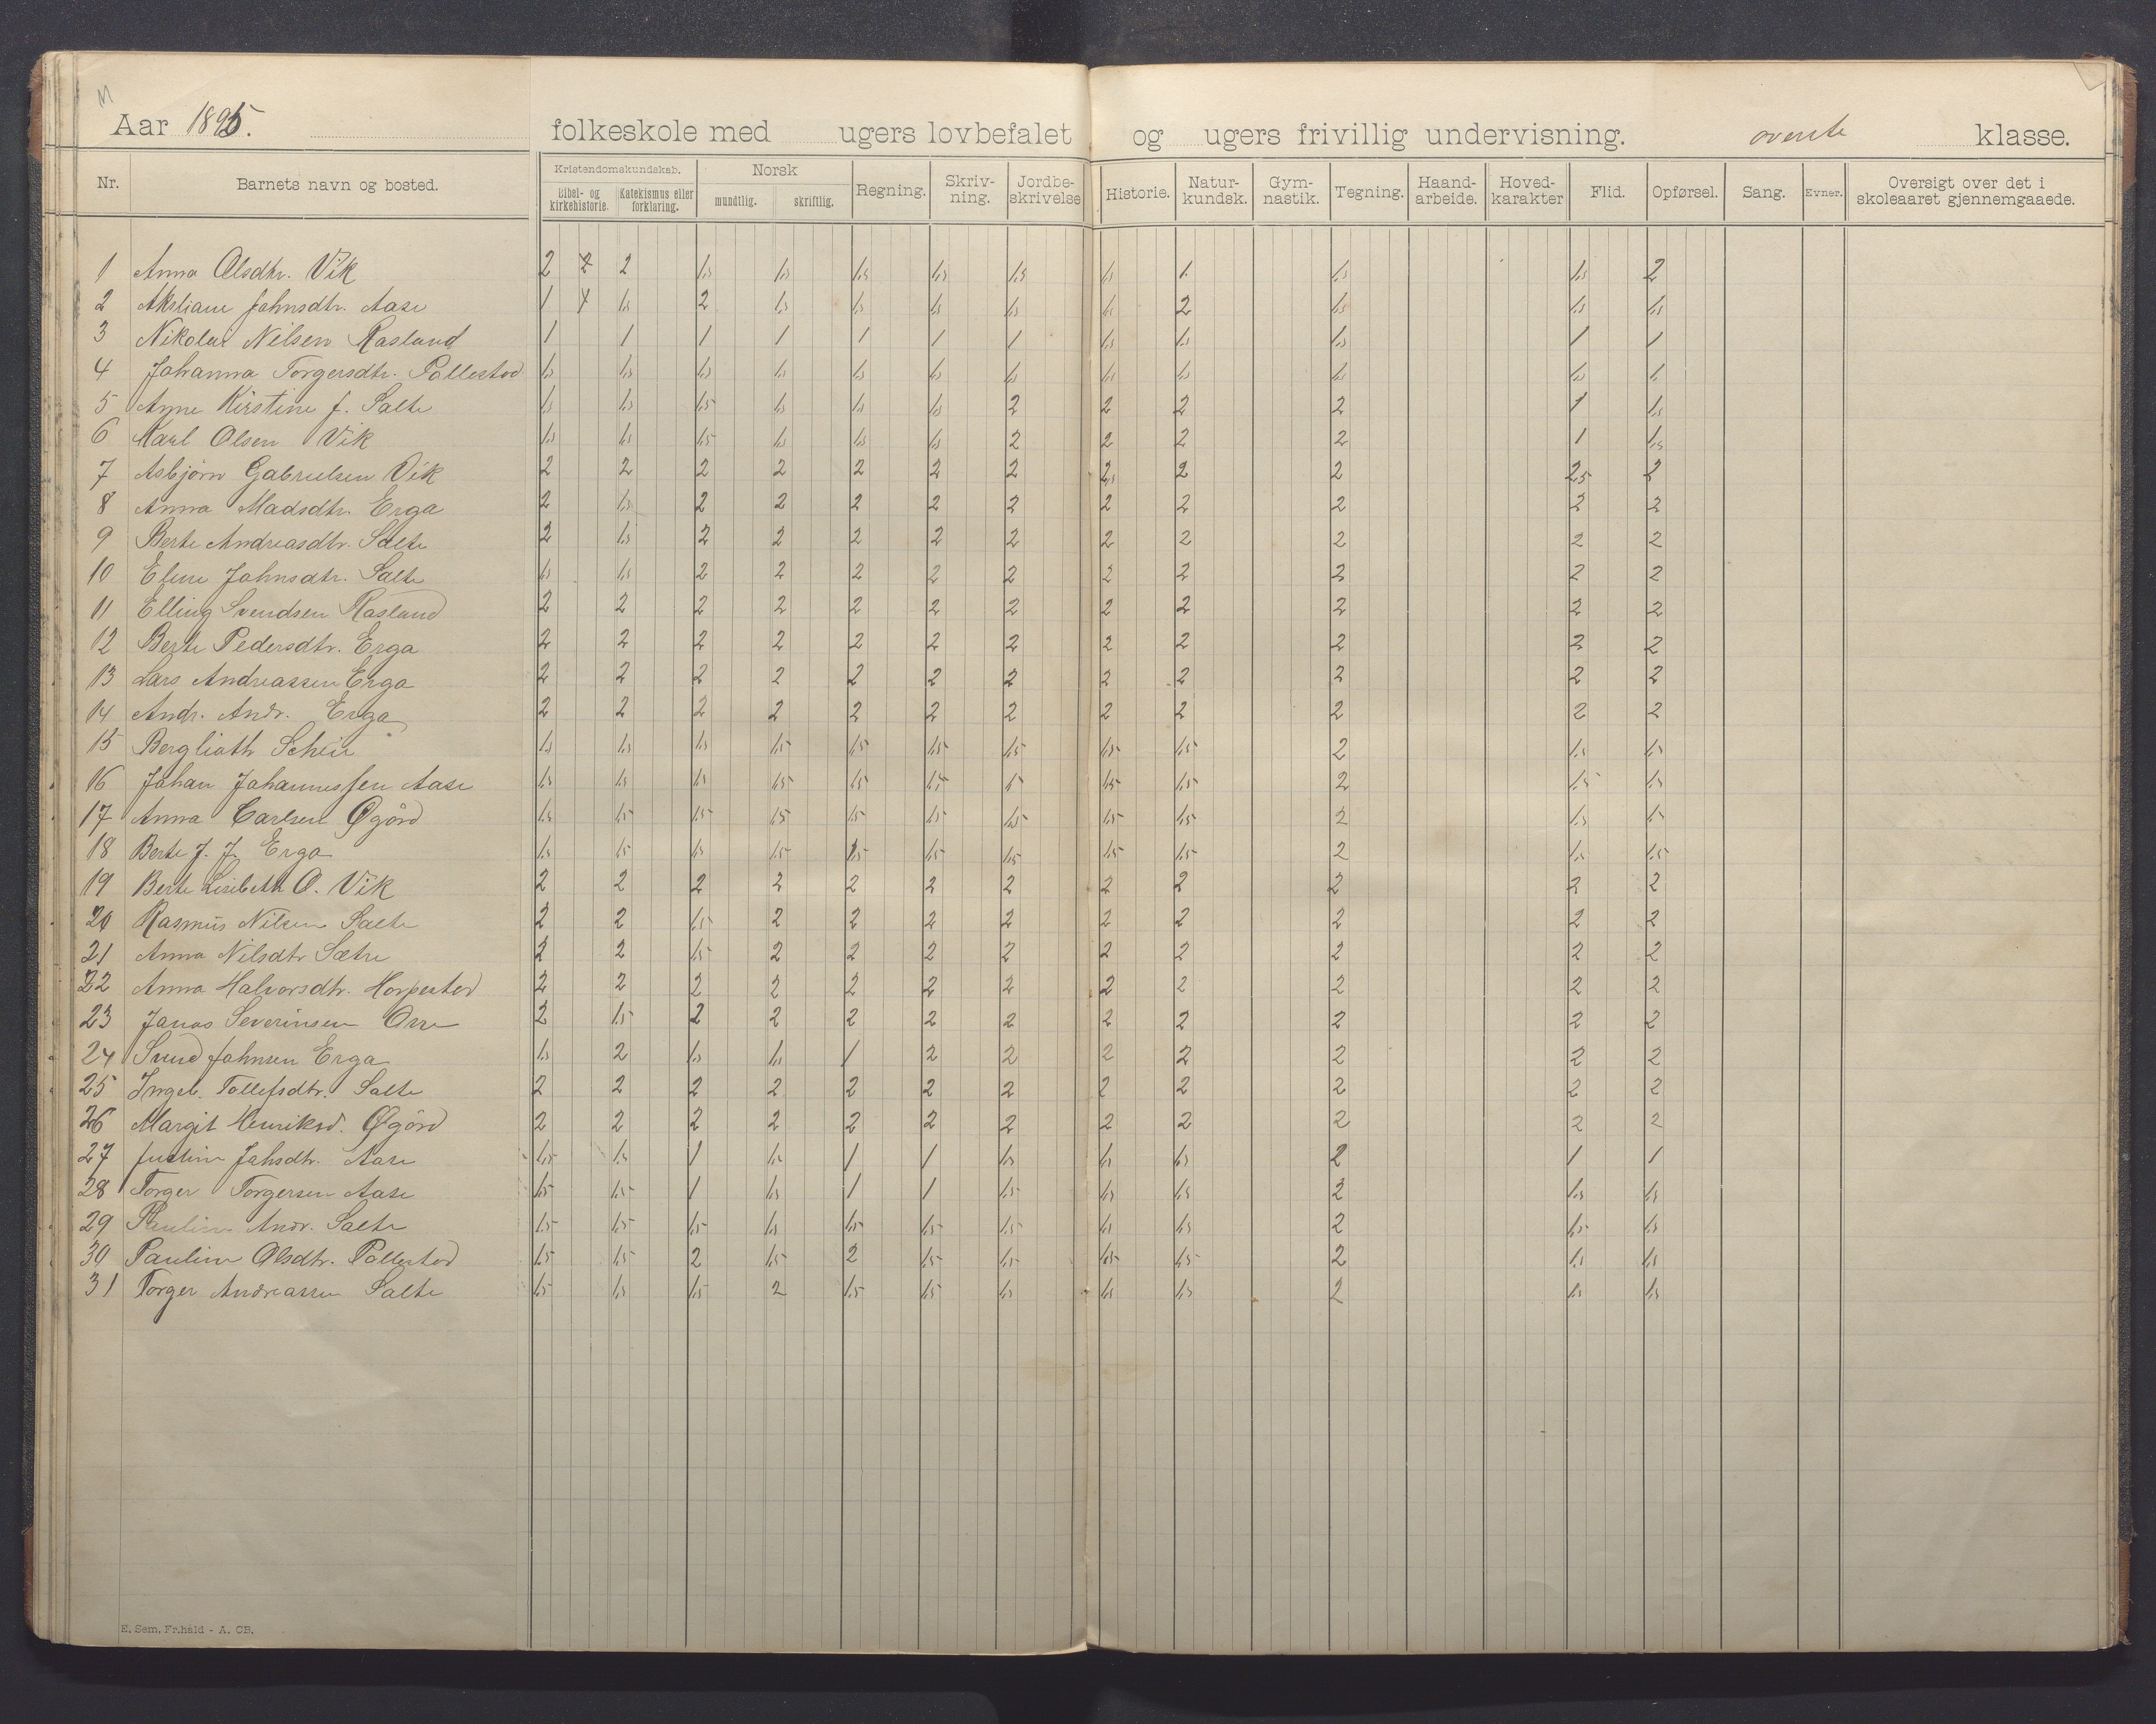 Aar 1895. folkeskole med ugers lovbefalet og ugers frivillig undervisning. øverste klasse.
Nr. Barnets navn og bosted. Kristendomskundskab. Bibel- og kirkehistorie. Katekismus eller forklaring. Norsk mundtlig. skriftlig. Regning. Skriv-ning. Jordbe-skrivelse Historie. Natur-kundsk. Gym-nastik. Tegning. Haand-arbeide. Hoved-karakter Flid. Opførsel. Sang. Evner. Oversigt over det i skoleaaret gjennemgaaede.
1 Anna Olsdtr. Vik 2 2 2 1.5 1.5 1.5 1.5 1.5 1.5 1. 1.5 1.5 2
2 Johnsdtr. Aase 1 1.5 2 1.5 1.5 1.5 1.5 1.5 2 1.5 1.5 1.5
3 Nikolai Nilsen Rasland 1 1 1 1 1 1 1 1.5 1.5 1.5 1 1
4 Johanna Torgersdtr. Pollestad 1.5 1.5 1.5 1.5 1.5 1.5 1.5 1.5 1.5 1.5 1.5 1.
5 Kirstine J. Salte 1.5 1.5 1.5 1.5 1.5 1.5 2 2 2 2 1 1.5
6 Karl Olsen Vik 1.5 1.5 1.5 1.5 1.5 1.5 2 2 2 2 1 1.5
7 Asbjørn Gabrielsen Vik 2 2 2 2 2 2 2 2.5 2 2 2.5 2
8 Anna Madsdtr. Erga 2 1.5 2 2 2 2 2 2 2 2 2 2
9 Berte Andreasdtr. Salte 2 1.5 2 2 2 2 2 2 2 2 2 2
10 Elene Johnsdtr. Salte 1.5 1.5 2 2 2 2 2 2 2 2 2 2
11 Elling Svendsen Rasland 2 2 2 2 2 2 2 2 2 2 2 2
12 Berte Pedersdtr. Erga 2 2 2 2 2 2 2 2 2 2 2 2
13 Lars Andreassen Erga 2 2 2 2 2 2 2 2 2 2 2 2
14 Andr. Andr. Erga 2 2 2 2 2 2 2 2 2 2 2 2
15 Bergliath Scheie 1.5 1.5 1.5 1.5 1.5 1.5 1.5 1.5 1.5 2 1.5 1.5
16 Johan Johannessen Aase 1.5 1.5 1.5 1.5 1.5 1.5 1.5 1.5 1.5 2 1.5 1.5
17 Anna Carlsen Øgård 1.5 1.5 1.5 1.5 1.5 1.5 1.5 1.5 1.5 2 1.5 1.5
18 Berte J. J. Erga 1.5 1.5 1.5 1.5 1.5 1.5 1.5 1.5 1.5 2 1.5 1.5
19 Berte Lisibeth O. Vik 2 2 2 2 2 2 2 2 2 2 2 2
20 Rasmus Nilsen Salte 2 2 1.5 2 2 2 2 2 2 2 2 2
21 Anna Nilsdtr Sætre 2 2 1.5 2 2 2 2 2 2 2 2 2
22 Anna Halvorsdtr. Horpestad 2 2 2 2 2 2 2 2 2 2 2 2
23 Jonas Severinsen Orre 2 1.5 2 2 2 2 2 2 2 2 2 2
24 Svend Johnsen Erga 1.5 2 1.5 1.5 1 2 2 2 2 2 2 2
25 Ingeb. Tollefsdtr. Salte 2 2 2 2 2 2 2 2 2 2 2 2
26 Margit Henriksd. Øgård 2 2 2 2 2 2 2 2 2 2 2 2
27 Justine Johsdtr. Aase 1.5 1.5 1 1.5 1 1 1.5 1.5 1.5 2 1 1
28 Torger Torgersen Aase 1.5 1.5 1 1.5 1 1 1.5 1.5 1.5 2 1.5 1.5
29 Pauline Andr. Salte 1.5 1.5 1.5 1.5 1.5 1.5 1.5 1.5 1.5 2 1.5 1.5
30 Pauline Olsdtr. Pollestad 1.5 1.5 2 1.5 2 1.5 1.5 1.5 1.5 2 1.5 1.5
31 Torger Andreassen Salte 1.5 1.5 1.5 2 1.5 1.5 1.5 1.5 1.5 2 1.5 1.5
E. Sem, Fr.hald - A. CB.